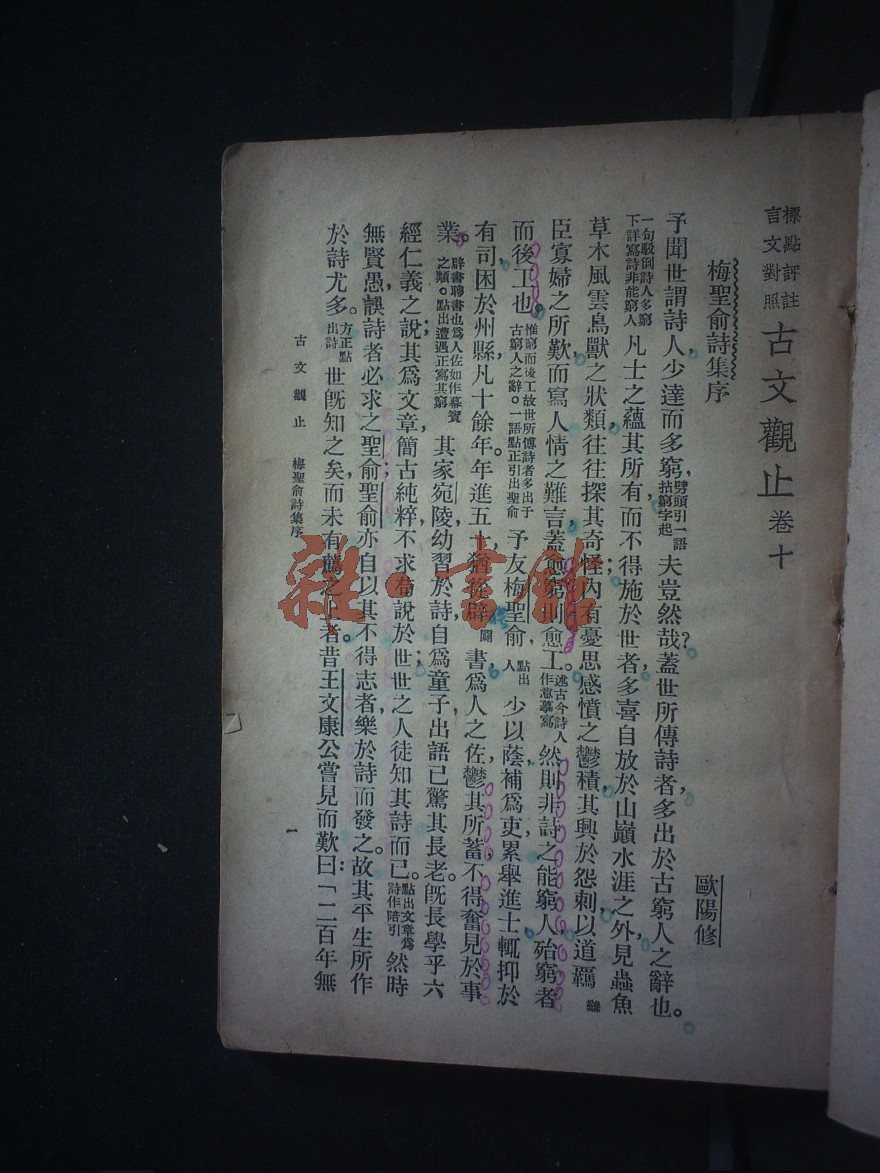 標點評註
言文對照
古文觀止 卷十
梅聖俞詩集序
歐陽修
予聞世謂詩人少達而多窮，劈頭引一語拈窮字起夫豈然哉？蓋世所傳詩者，多出於古窮人之辭也。
一句駁倒詩人多窮下詳寫詩非能窮人凡士之蘊其所有，而不得施於世者，多喜自放於山巔水涯之外，見蟲魚
草木風雲鳥獸之狀類，往往探其奇怪；內有憂思感憤之鬱積，其興於怨刺，以道羈雞
臣寡婦之所歎，而寫人情之難言，蓋愈窮則愈工。述古今詩人作意摹寫然則非詩之能窮人，殆窮者
而後工也。惟窮而後工故世所傳詩者多出于古窮人之辭。一語點正引出聖俞予友梅聖俞，點出人少以蔭補爲吏，累舉進士，輒抑於
有司，困於州縣，凡十餘年。年進五十，猶從辟闢書，爲人之佐，鬱其所蓄，不得奮見於事
業。辟書聘書也爲人佐如作幕賓之類。點出遭遇正寫其窮其家宛陵，幼習於詩，自爲童子，出語已驚其長老。旣長，學乎六
經仁義之說；其爲文章，簡古純粹，不求苟說於世；世之人徒知其詩而已。點出文章爲詩作陪引然時
無賢愚，誤詩者必求之聖俞；聖俞亦自以其不得志者，樂於詩而發之。故其平生所作，
於詩尤多。方正點出詩世旣知之矣，而未有薦之上者。昔王文康公嘗見而歎曰：「二百年無
古文觀止 梅聖俞詩集序
一
雜·書館